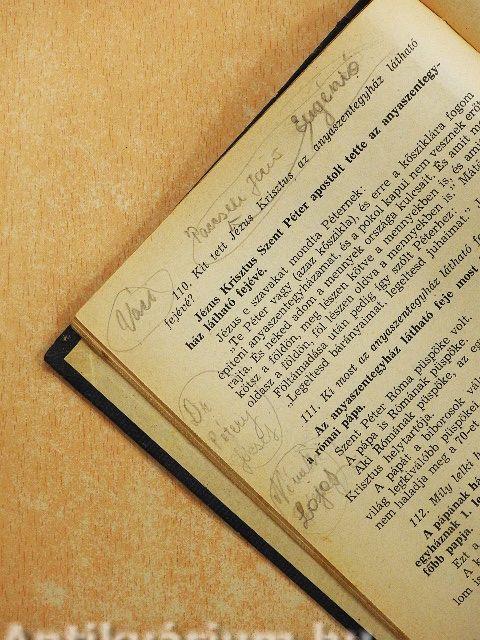 Eugénió
110. Kit tett Jézus Krisztus az anyaszentegyház látható
fejévé?
Jézus Krisztus Szent Péter apostolt tette az anyaszentegy-
ház látható fejévé.
Jézus e szavakat mondta Péternek:
„Te Péter vagy (azaz kőszikla), és erre a kősziklára fogom
építeni anyaszentegyházamat és a pokol kapui nem vesznek erőt
rajta. És neked adom a mennyek országa kulcsait. És amit m
kötsz a földön, meg lészen kötve a mennyekben is, és amit
oldasz a földön, föl lészen oldva a mennyekben is." Máté
Föltámadása után pedig így szólt Péterhez:
„Legeltesd bárányaimat, legeltesd juhaimat."
111. Ki most az anyaszentegyház látható fe
Az anyaszentegyház látható feje most
római pápa.
Szent Péter Róma püspöke volt.
A pápa is Rómának püspöke.
Aki Rómának püspöke, az eg
Krisztus helytartója
A pápát a bíborosok vál
világ legkiválóbb püspökei
nem haladja meg a 70-et
112. Mily lelki h
A pápának
egyháznak 1. le
főbb papja.
Ezt a
A k
lom is
Váró
Dr
Lajos
Antikvárium.hu